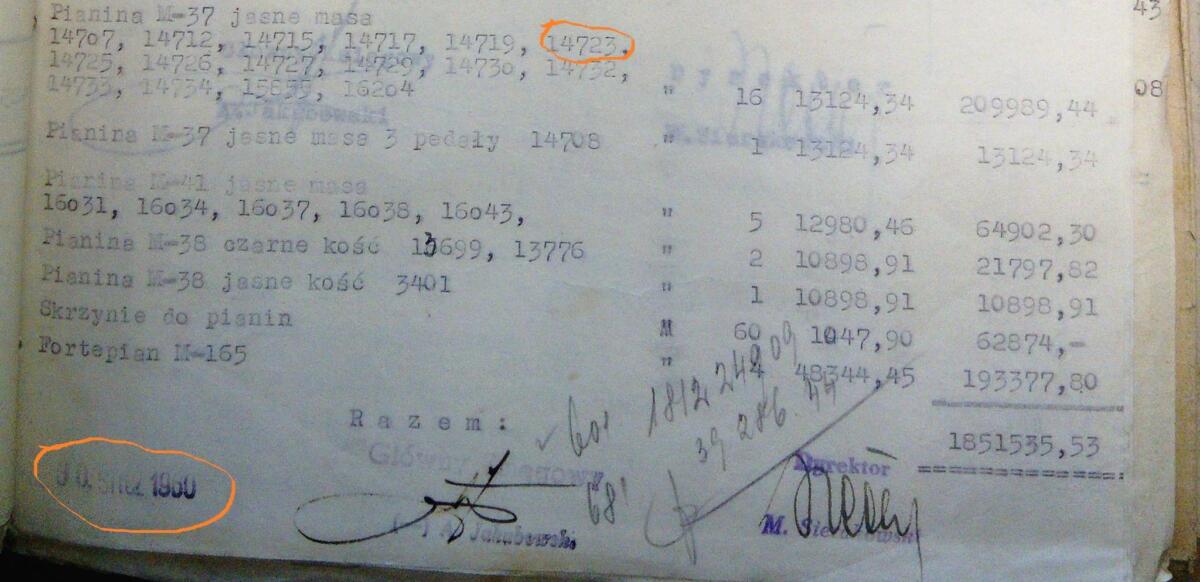 Pianina M-37 jasne masa
43
14707, 14712, 14715, 14717, 14719, 14723,
14725, 14726, 14727, 14729, 14730, 14732,
14733, 14734, 15859, 16204 " 16 13124,34 209989,44
08
Pianina M-37 jasne masa 3 pedały 14708 " 1 13124,34 13124,34
Pianina M-41 jasne masa
16031, 16034, 16037, 16038, 16043, " 5 12980,46 64902,30
Pianina M-38 czarne kość 13699, 13776 " 2 10898,91 21797,82
Pianina M-38 jasne kość 3401 " 1 10898,91 10898,91
Skrzynie do pianin M 60 1047,90 62874,-
Fortepian M-165 " 4 48344,45 193377,80
Razem: 1851535,53
1812 249 09
39 286.44
681
Główny Księgowy
Dyrektor
30. 1960
(-) A. Jakubowski
M.